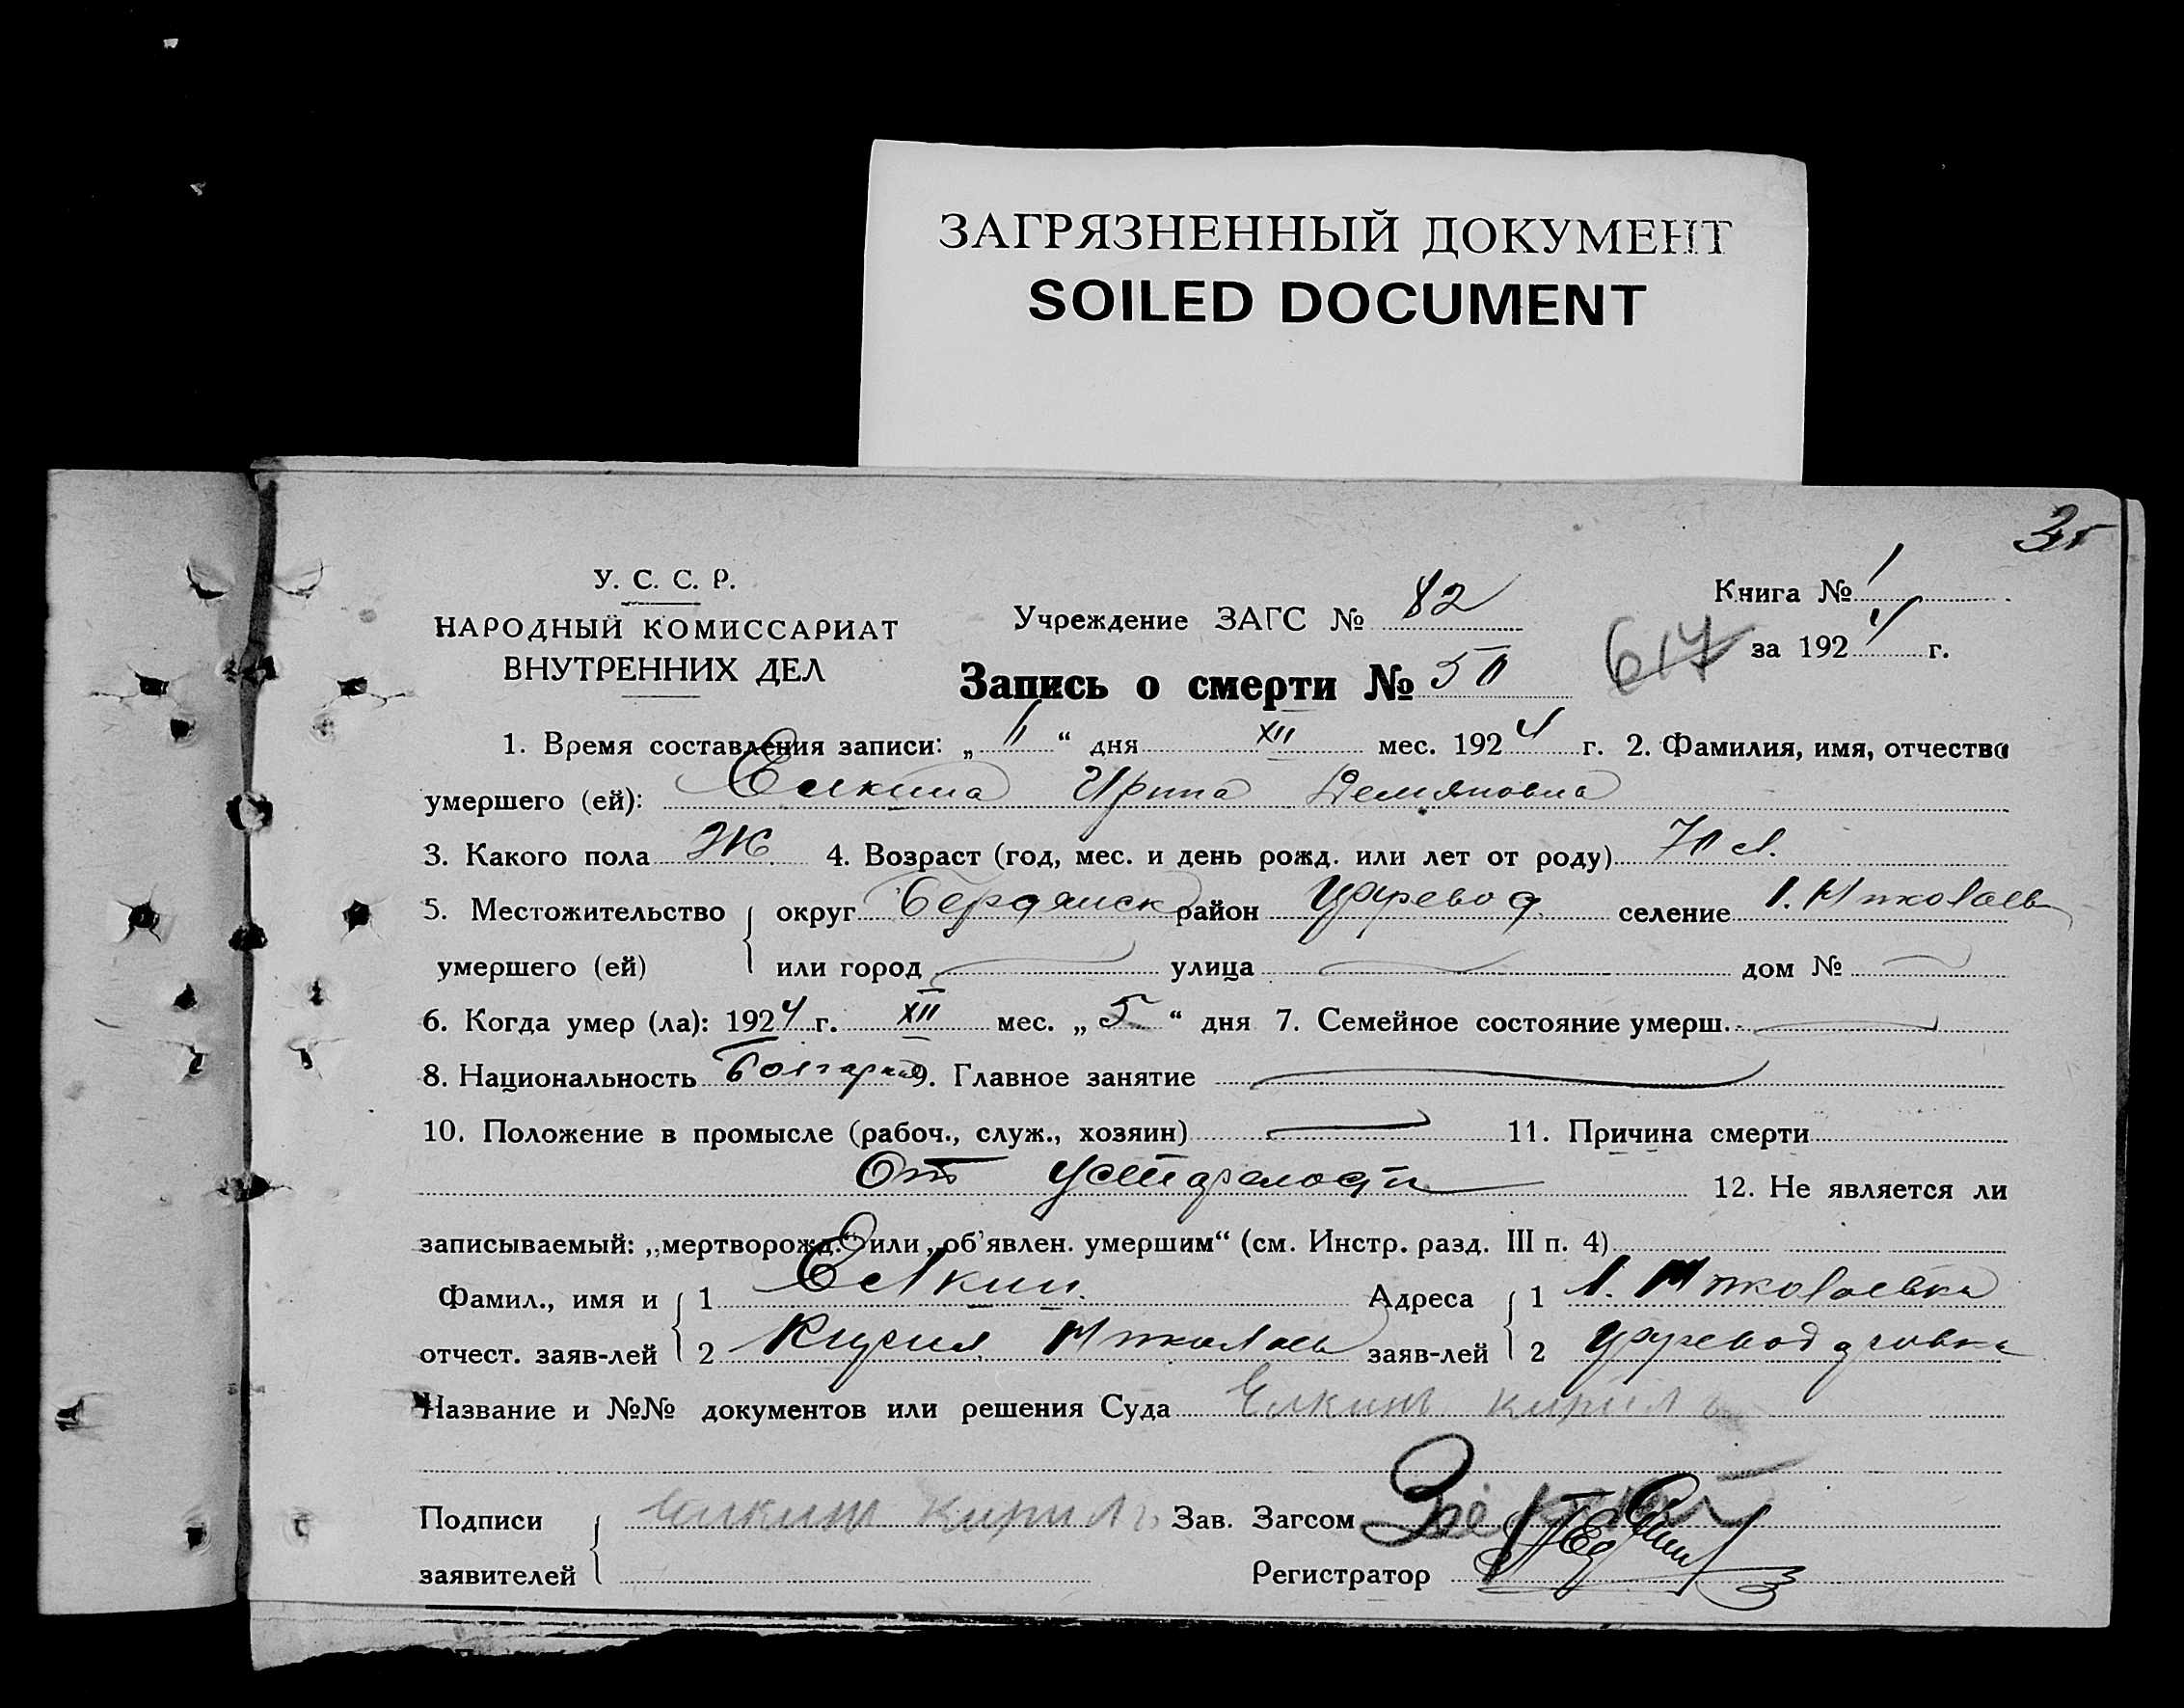 ЗАГРЯЗНЕННЫЙ ДОКУМЕНТ
SOILED DOCUMENT
У. С. С. Р.
НАРОДНЫЙ КОМИССАРИАТ
ВНУТРЕННИХ ДЕЛ
Учреждение ЗАГС № 82
Книга № 1
за 1924 г.
617
Запись о смерти № 50
1. Время составления записи: „11“ дня XII мес. 1924 г. 2. Фамилия, имя, отчество
умершего (ей): Елкина Ирина Демяновна
3. Какого пола Ж. 4. Возраст (год, мес. и день рожд. или лет от роду) 70 л.
5. Местожительство округ Бердянск район Царевод. селение Николаевк
умершего (ей) или город улица дом №
6. Когда умер (ла): 1924 г. XII мес. „5“ дня 7. Семейное состояние умерш.
8. Национальность Болгарка 9. Главное занятие
10. Положение в промысле (рабоч., служ., хозяин) 11. Причина смерти
От устарелости 12. Не является ли
записываемый: „мертворожд.“ или „об'явлен. умершим“ (см. Инстр. разд. III п. 4)
Фамил., имя и 1 Елкин. Адреса 1 Николаевка
отчест. заяв-лей 2 Кирил Николаев заяв-лей 2 Царевод
Название и №№ документов или решения Суда Елкинъ Кирилъ
Подписи Елкинъ Кирилъ Зав. Загсом
заявителей Регистратор